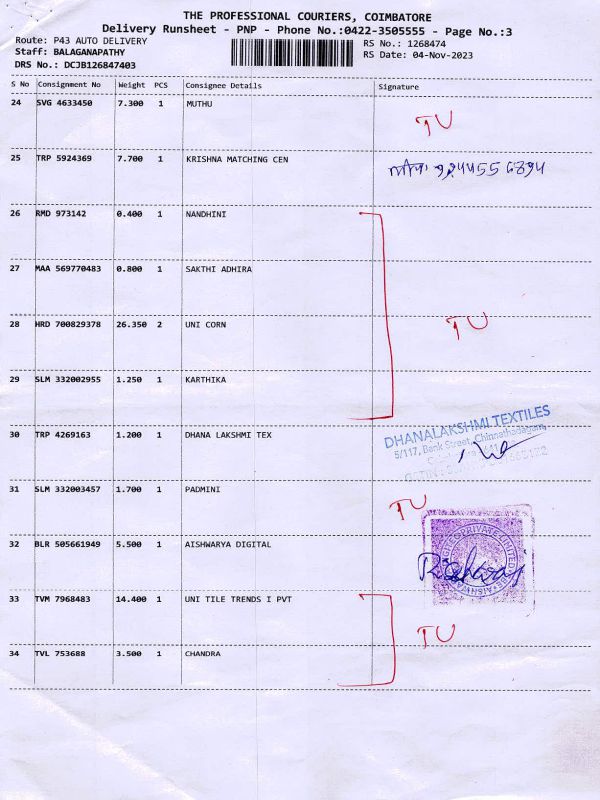 THE PROFESSIONAL COURIERS, COIMBATORE
Delivery Runsheet - PNP - Phone No.:0422-3505555 - Page No.:3
Route: P43 AUTO DELIVERY
RS No.: 1268474
Staff: BALAGANAPATHY
RS Date: 04-Nov-2023
DRS No.: DCJB126847403
S No Consignment No Weight PCS Consignee Details Signature
24 SVG 4633450 7.300 1 MUTHU
TU
25 TRP 5924369 7.700 1 KRISHNA MATCHING CEN
26 RMD 973142 0.400 1 NANDHINI
27 MAA 569770483 0.800 1 SAKTHI ADHIRA
28 HRD 700829378 26.350 2 UNI CORN
TU
29 SLM 332002955 1.250 1 KARTHIKA
30 TRP 4269163 1.200 1 DHANA LAKSHMI TEX
DHANALAKSHMI TEXTILES
5/117, Bank Street, Chinnathadagam,
31 SLM 332003457 1.700 1 PADMINI
TU
32 BLR 505661949 5.500 1 AISHWARYA DIGITAL
PRIVATE LIMITED
33 TVM 7968483 14.400 1 UNI TILE TRENDS I PVT
TU
34 TVL 753688 3.500 1 CHANDRA